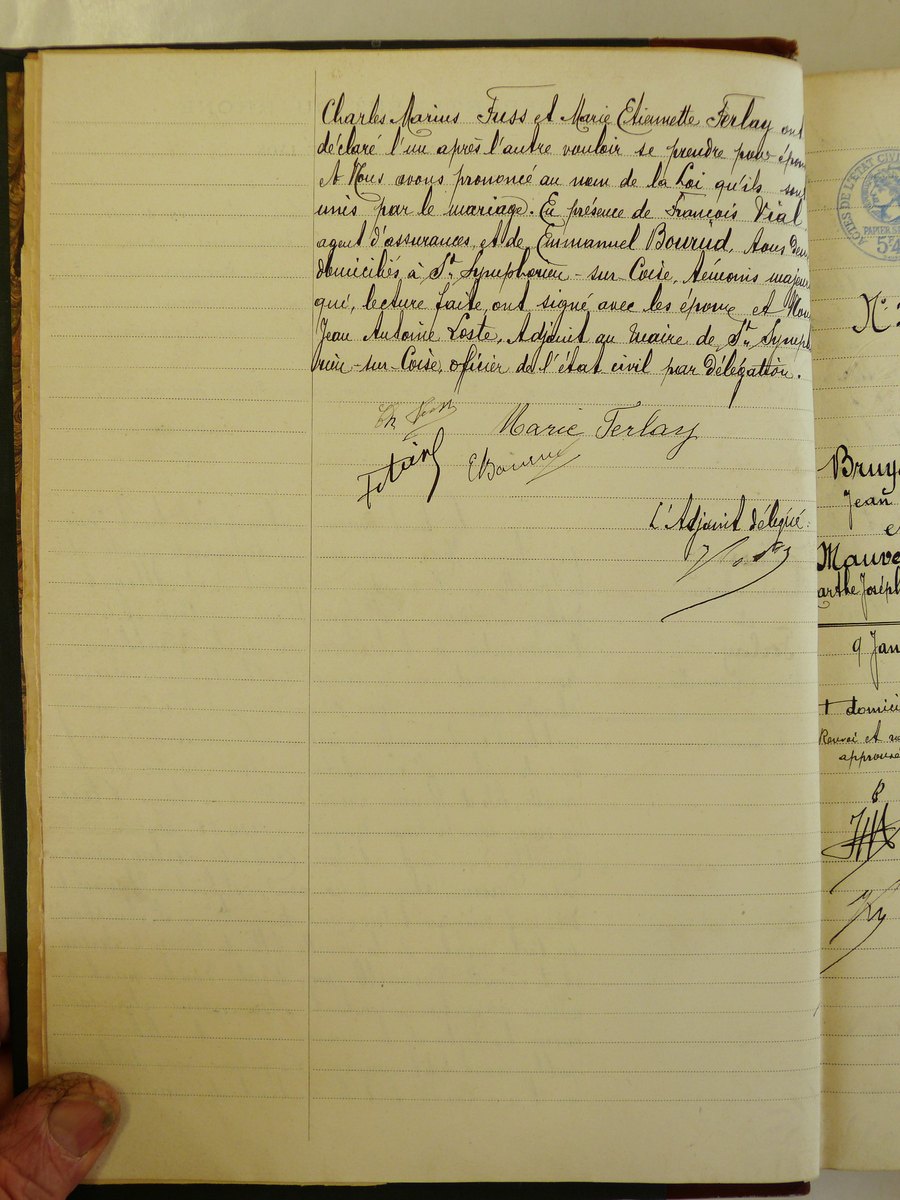 Charles Marius Fuss et Marie Etiennette Ferlay ont
déclaré l'un après l'autre vouloir se prendre pour épou
et Nous avons prononcé au nom de la Loi qu'ils sont
unis par le mariage. En présence de François Vial
agent d'assurances, et de Emmanuel Bourud, tous deux
domiciliés à St Symphorien-sur-Coise, témoins majeurs
qui, lecture faite, ont signé avec les époux et Nous
Jean Antoine Loste, Adjoint au Maire de St Sympho
rien-sur-Coise, officier de l'état civil par délégation.
Ch Fuss
Marie Ferlay
L'Adjoint délégué:
ACTES DE L'ETAT CIVIL
PAPIER
N°
Bruy
Jean
e
Mauve
arthe Joséph
9 Jan
+ domici
Renvoi et
approuvé